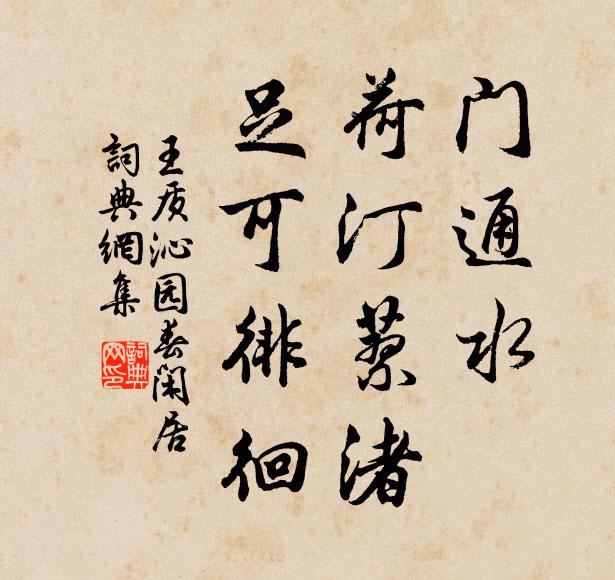 门通水
荷汀蓼渚
足可徘徊
王质沁园春闲居
詞典網集
詞典
网印